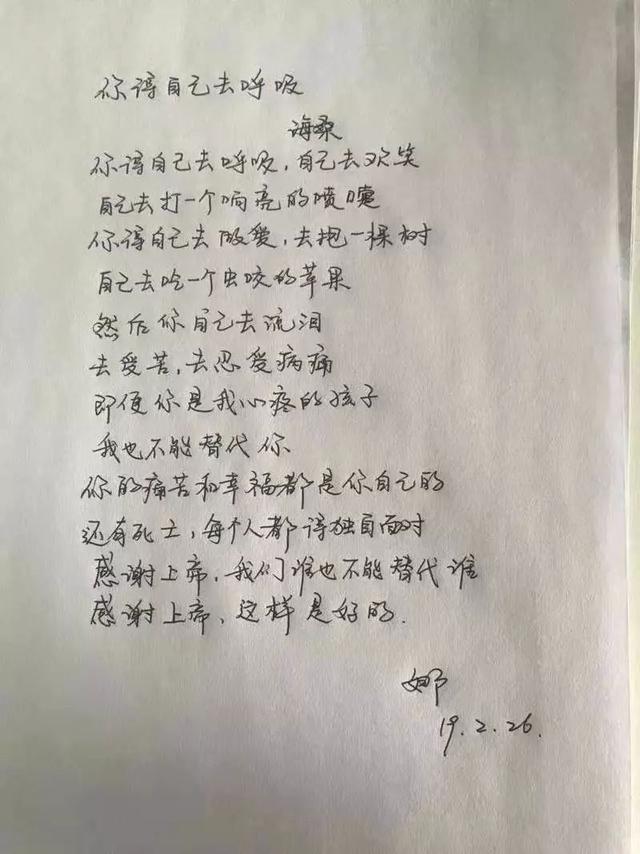 你得自己去呼吸
海桑
你得自己去呼吸，自己去欢笑
自己去打一个响亮的喷嚏
你得自己去做爱，去抱一棵树
自己去吃一个虫咬的苹果
然后你自己去流泪
去受苦，去忍受病痛
即便你是我心疼的孩子
我也不能替代你
你的痛苦和幸福都是你自己的
还有死亡，每个人都得独自面对
感谢上帝，我们谁也不能替代谁
感谢上帝，这样是好的.
娜
19.2.26.